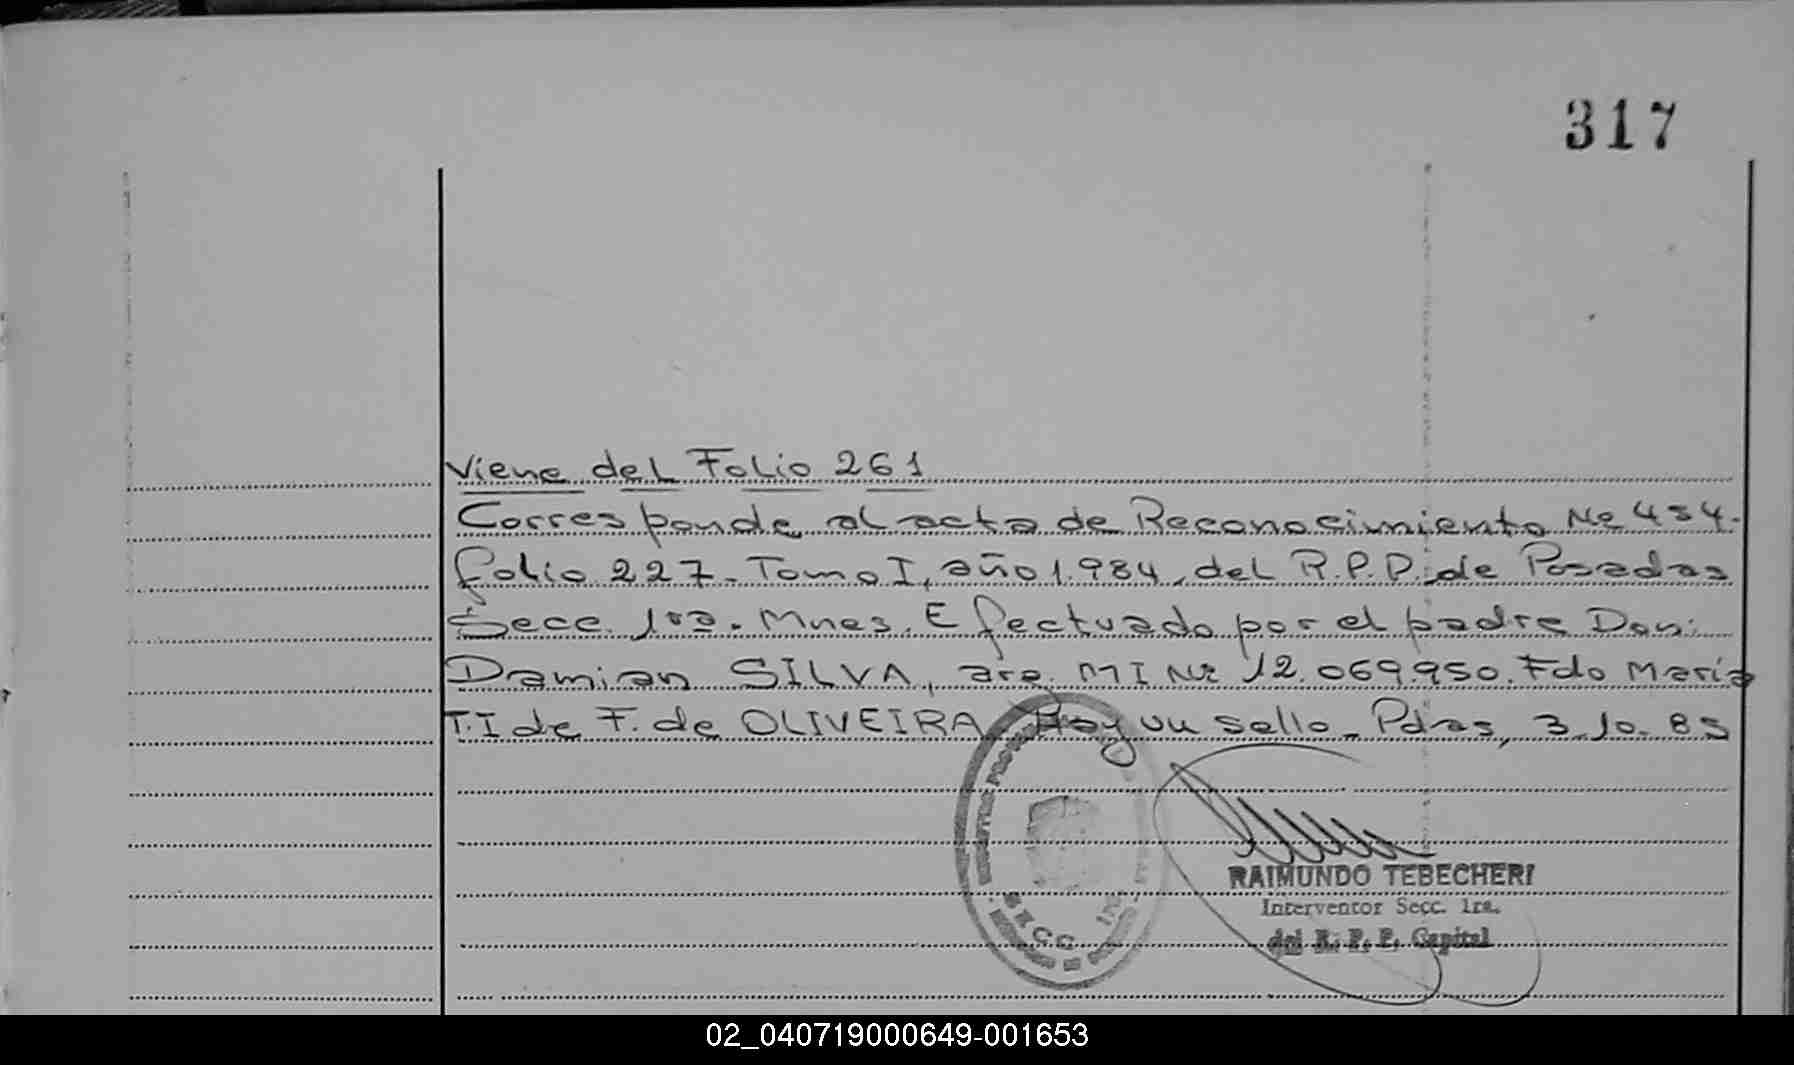 317
Viene del Folio 261
Corresponde al acta de Reconocimiento Nº 454.
folio 227. Tomo I, año 1.984, del R.P.P. de Posadas
Secc. 1ra. Mnes. Efectuado por el padre Don:
Damian SILVA, arg. MI Nº 12.069.950. Fdo Maria
T.I de F. de OLIVEIRA Hay un sello. Pdas, 3.10.85
SECC 1RA
RAIMUNDO TEBECHERI
Interventor Secc. 1ra.
del R. P. P. Capital
02_040719000649-001653